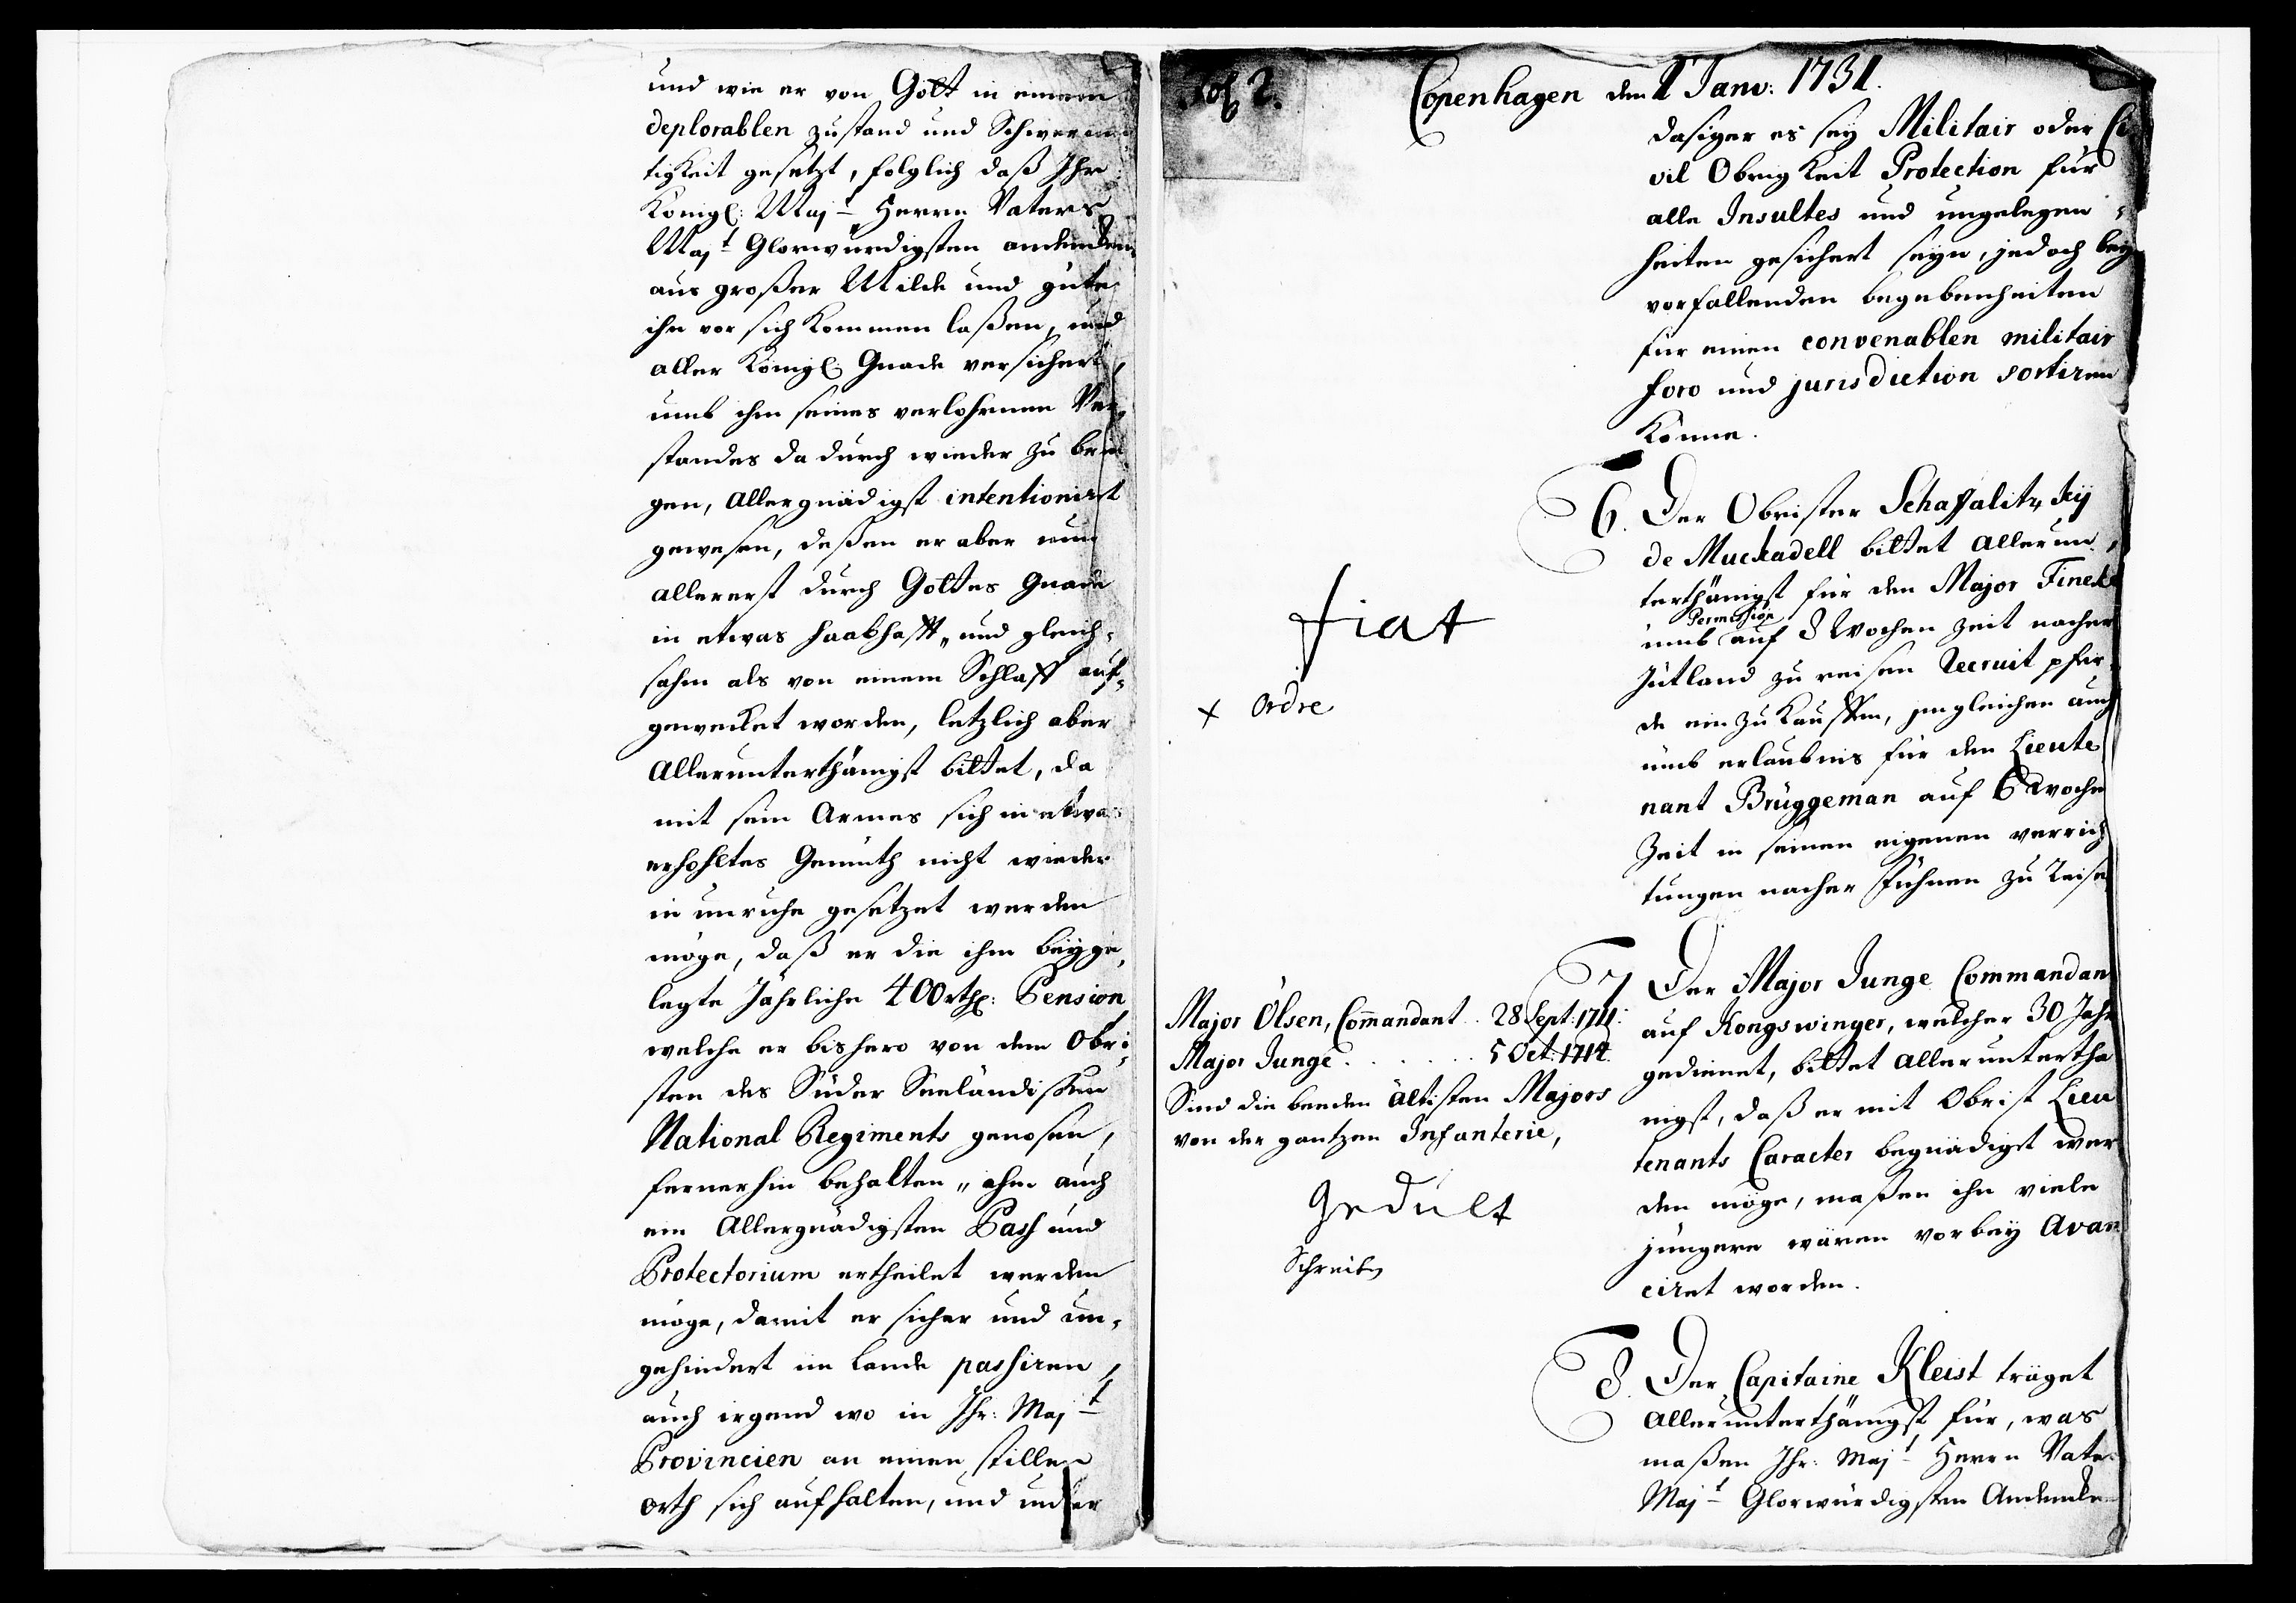 und wie er von Gott in einem
deplorablen zustand und Schwermü-
tigkeit gesetzt, folglich daß Ihr.
Königl: Maj:t Herrn Vaters
Maj:t Glorwürdigsten andencken
aus großer Milde und güte
ihn vor sich kommen laßen, und
aller Königl: Gnade versichert,
umb ihm seines verlohrnen Ver-
standes dadurch wieder zu brin-
gen, Allergnädigst intentioniret
gewesen, deßen er aber nun
allererst durch Gottes Gnade
in etwas haabhafft, und gleich-
sahm als von einem Schlaff auf-
gewecket worden, letzlich aber
Allerunterthänigst bittet, da
mit sein Armes sich in etwas
erhohltes Gemüth nicht wieder
in unruhe gesetzet werden
möge, daß er die ihm beyge-
legte Jährliche 400 rthl: Pension
welche er bishero von dem Obri-
sten des Süder Seeländischen
National Regiments genosen,
fernerhin behalten, ihm auch
ein Allergnädigsten Pass und
Protectorium ertheilet werden
möge, damit er sicher und un-
gehindert im Lande passiren,
auch irgend wo in Ihr: Maj:t
Provincien an einen stillen
orth sich aufhalten, und unter
Fol 2.
Copenhagen den 1 Janv: 1731.
dasiger es sey Militair oder Ci-
vil Obrigkeit Protection für
alle Insultes und ungelegen-
heiten gesichert seyn, jedoch bey
vorfallenden begebenheiten
für einen convenablen militair
foro und jurisdiction sortiren
könne.
6. Der Obrister Schaffalitzkij
de Muckadell bittet allerun-
terthänigst für den Major Fineke
Permission
umb auf 8 Wochen zeit nacher
Jütland zu reisen Recruit pfer-
de ein zu kauffen, imgleichen auch
umb erlaubnis für den Lieute
nant Brüggeman auf 6 Woche
Zeit in seinen eigenen verrich
tungen nacher Fühnen zu Reise
fiat
x ordre
7 Der Major Junge Commandan
auf Kongswinger, welcher 30 Jahr
gedienet, bittet allerunterthä
nigst, daß er mit Obrist Lieu
tenants Caracter begnädigt wer
den möge, maßen ihn viele
jüngere wären vorbey Avan
ciret worden.
Major Olsen, Commandant .. 28 Sept: 1711.
Major Junge . . . . . . 5 Oct: 1712.
Sind die beeden ältisten Majors
von der gantzen Infanterie,
Gedult
Schreiben
8. Der Capitaine Kleist träget
Allerunterthänigst für, was
maßen Ihr: Maj:t Herrn Vater
Maj:t Glorwürdigsten Andencken